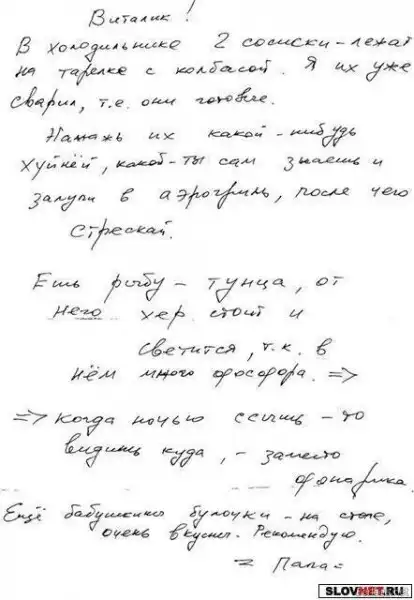 Виталик!
В холодильнике 2 сосиски – лежат
на тарелке с колбасой. Я их уже
сварил, т.е. они готовые.
Намажь их какой-нибудь
хуйнёй, какой-ты сам знаешь и
залупи в аэрогриль, после чего
стрескай.
Ешь рыбу – тунца, от
него хер стоит и
светится, т.к. в
нём много фосфора. =>
=> Когда ночью ссышь – то
видишь куда, – заместо
фонарика.
Ещё бабушкины булочки – на столе,
очень вкусны. Рекомендую.
= Папа =
SLOVNET.RU